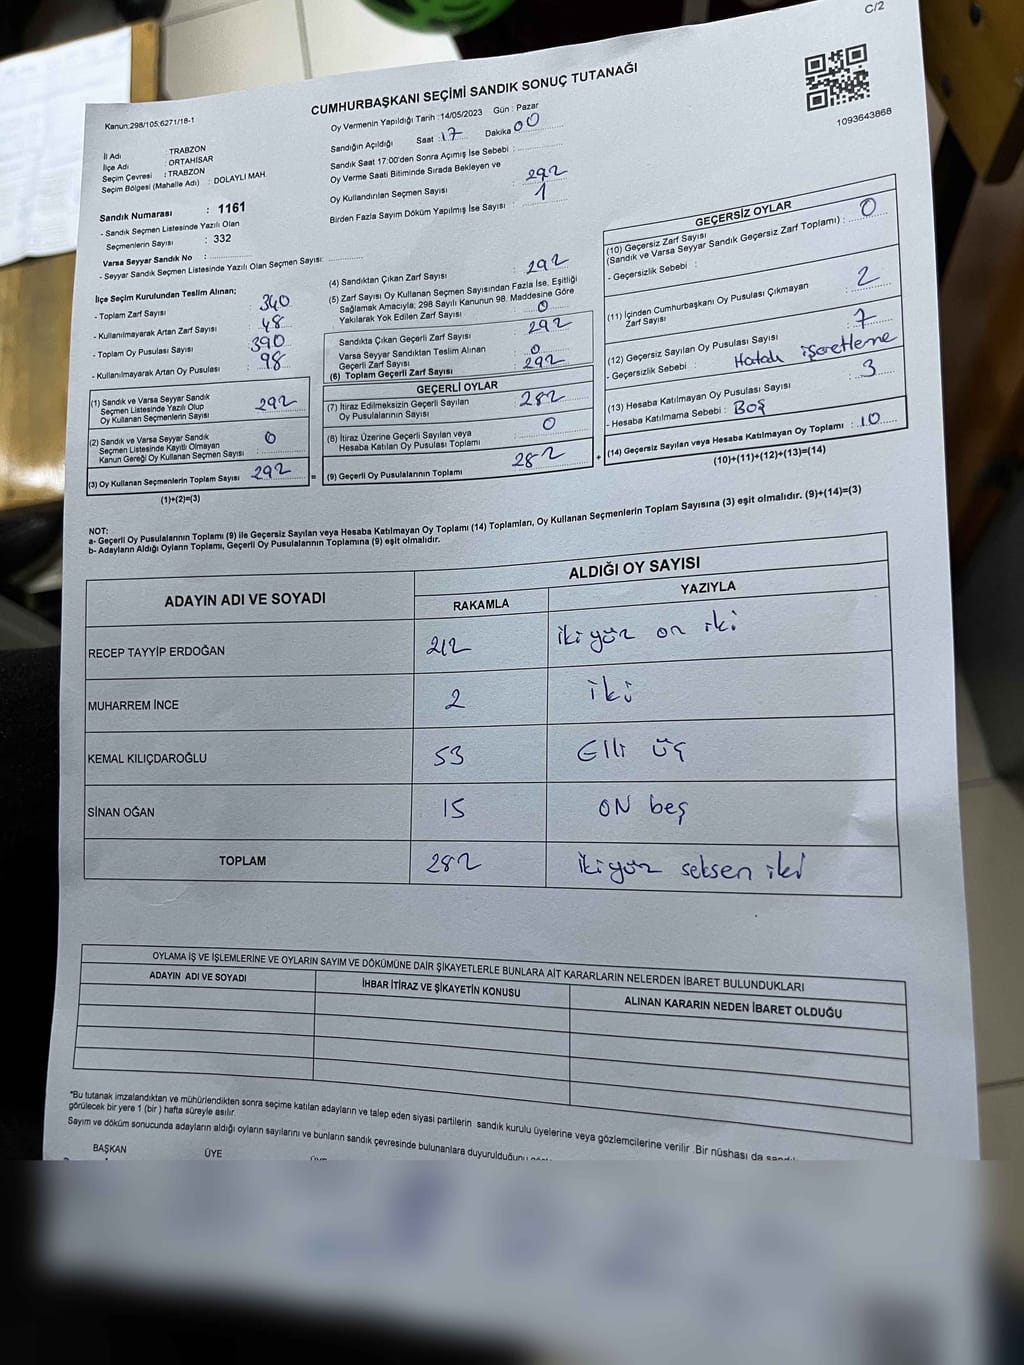 C/2
Kanun:298/105;6271/18-1
CUMHURBAŞKANI SEÇİMİ SANDIK SONUÇ TUTANAĞI
1093643868
İl Adı : TRABZON
İlçe Adı : ORTAHİSAR
Seçim Çevresi : TRABZON
Seçim Bölgesi (Mahalle Adı) : DOLAYLI MAH.
Sandık Numarası : 1161
- Sandık Seçmen Listesinde Yazılı Olan
Seçmenlerin Sayısı : 332
Varsa Seyyar Sandık No :
- Seyyar Sandık Seçmen Listesinde Yazılı Olan Seçmen Sayısı:
Oy Vermenin Yapıldığı Tarih :14/05/2023 Gün : Pazar
Sandığın Açıldığı Saat :17 Dakika 00
Sandık Saat 17:00'den Sonra Açımış İse Sebebi :
Oy Verme Saati Bitiminde Sırada Bekleyen ve
Oy Kullandırılan Seçmen Sayısı : 292
Birden Fazla Sayım Döküm Yapılmış İse Sayısı : 1
İlçe Seçim Kurulundan Teslim Alınan;
- Toplam Zarf Sayısı : 340
- Kullanılmayarak Artan Zarf Sayısı : 48
- Toplam Oy Pusulası Sayısı : 390
- Kullanılmayarak Artan Oy Pusulası : 98
(1) Sandık ve Varsa Seyyar Sandık
Seçmen Listesinde Yazılı Olup
Oy Kullanan Seçmenlerin Sayısı : 292
(2) Sandık ve Varsa Seyyar Sandık
Seçmen Listesinde Kayıtlı Olmayan
Kanun Gereği Oy Kullanan Seçmen Sayısı : 0
(3) Oy Kullanan Seçmenlerin Toplam Sayısı : 292
(1)+(2)=(3)
=
(4) Sandıktan Çıkan Zarf Sayısı : 292
(5) Zarf Sayısı Oy Kullanan Seçmen Sayısından Fazla İse, Eşitliği
Sağlamak Amacıyla; 298 Sayılı Kanunun 98. Maddesine Göre
Yakılarak Yok Edilen Zarf Sayısı : 0
Sandıkta Çıkan Geçerli Zarf Sayısı : 292
Varsa Seyyar Sandıktan Teslim Alınan
Geçerli Zarf Sayısı : 0
(6) Toplam Geçerli Zarf Sayısı : 292
GEÇERLİ OYLAR
(7) İtiraz Edilmeksizin Geçerli Sayılan
Oy Pusulalarının Sayısı : 282
(8) İtiraz Üzerine Geçerli Sayılan veya
Hesaba Katılan Oy Pusulası Toplamı : 0
(9) Geçerli Oy Pusulalarının Toplamı : 282
+
GEÇERSİZ OYLAR
(10) Geçersiz Zarf Sayısı
(Sandık ve Varsa Seyyar Sandık Geçersiz Zarf Toplamı) : 0
- Geçersizlik Sebebi :
(11) İçinden Cumhurbaşkanı Oy Pusulası Çıkmayan
Zarf Sayısı : 2
(12) Geçersiz Sayılan Oy Pusulası Sayısı : 7
- Geçersizlik Sebebi : Hatalı işaretleme
(13) Hesaba Katılmayan Oy Pusulası Sayısı : 3
- Hesaba Katılmama Sebebi : BOŞ
(14) Geçersiz Sayılan veya Hesaba Katılmayan Oy Toplamı : 10
(10)+(11)+(12)+(13)=(14)
NOT:
a- Geçerli Oy Pusulalarının Toplamı (9) ile Geçersiz Sayılan veya Hesaba Katılmayan Oy Toplamı (14) Toplamları, Oy Kullanan Seçmenlerin Toplam Sayısına (3) eşit olmalıdır. (9)+(14)=(3)
b- Adayların Aldığı Oyların Toplamı, Geçerli Oy Pusulalarının Toplamına (9) eşit olmalıdır.
ADAYIN ADI VE SOYADI ALDIĞI OY SAYISI
RAKAMLA YAZIYLA
RECEP TAYYİP ERDOĞAN 212 iki yüz on iki
MUHARREM İNCE 2 iki
KEMAL KILIÇDAROĞLU 53 Elli üç
SİNAN OĞAN 15 ON beş
TOPLAM 282 iki yüz seksen iki
OYLAMA İŞ VE İŞLEMLERİNE VE OYLARIN SAYIM VE DÖKÜMÜNE DAİR ŞİKAYETLERLE BUNLARA AİT KARARLARIN NELERDEN İBARET BULUNDUKLARI
ADAYIN ADI VE SOYADI İHBAR İTİRAZ VE ŞİKAYETİN KONUSU ALINAN KARARIN NEDEN İBARET OLDUĞU
*Bu tutanak imzalandıktan ve mühürlendikten sonra seçime katılan adayların ve talep eden siyasi partilerin sandık kurulu üyelerine veya gözlemcilerine verilir .Bir nüshası da
görülecek bir yere 1 (bir ) hafta süreyle asılır.
Sayım ve döküm sonucunda adayların aldığı oyların sayılarını ve bunların sandık çevresinde bulunanlara duyurulduğunu
BAŞKAN ÜYE